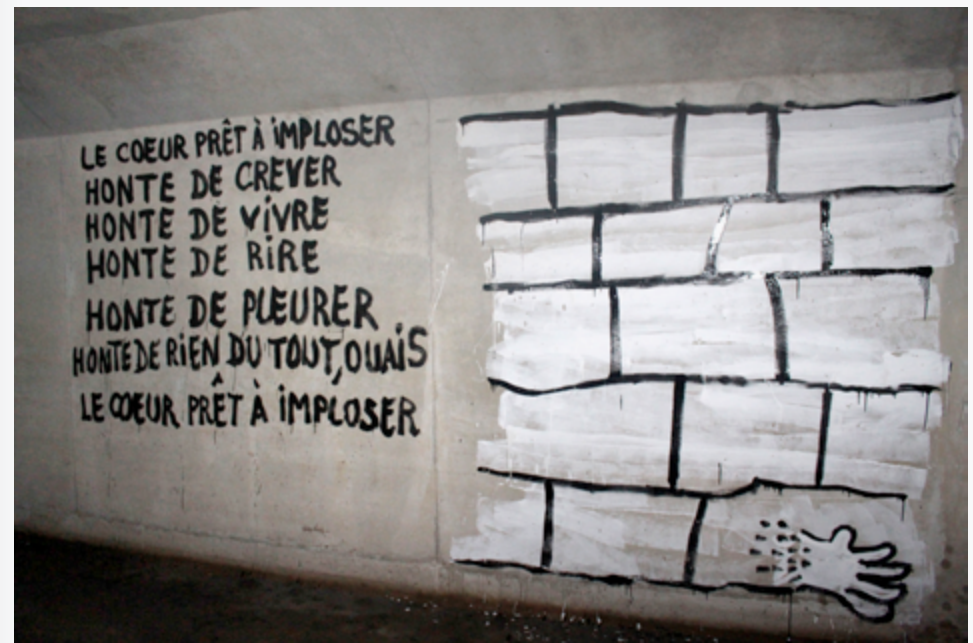 LE COEUR PRÊT À iMPLOSER
HONTE DE CREVER
HONTE DE ViVRE
HONTE DE RiRE
HONTE DE PLEURER
HONTE DE RiEN DU TOUT, OUAiS
LE COEUR PRÊT À iMPLOSER